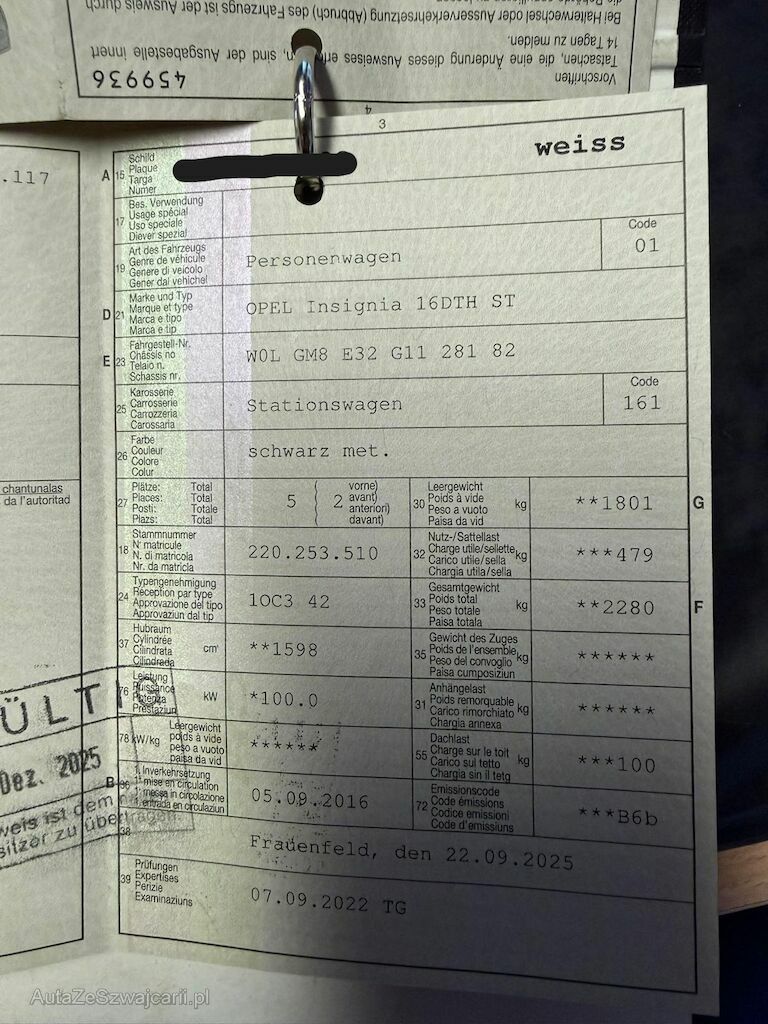 die
Bei Halterwechsel oder Ausserverkehrsetzung (Abbruch) des Fahrzeugs ist der Ausweis durch
14 Tagen zu melden.
Tatsachen, die eine Änderung dieses Ausweises, sind der Ausgabestelle innert
Vorschriften
459936
4
3
.117
A 15 Schild
Plaque
Targa
Numer
weiss
17 Bes. Verwendung
Usage spécial
Uso speciale
Diever spezial
19 Art des Fahrzeugs
Genre de véhicule
Genere di veicolo
Gener dal vehichel
Personenwagen
Code
01
D 21 Marke und Typ
Marque et type
Marca e tipo
Marca e tip
OPEL Insignia 16DTH ST
E 23 Fahrgestell-Nr.
Châssis no
Telaio n.
Schassis nr.
W0L GM8 E32 G11 281 82
25 Karosserie
Carrosserie
Carrozzeria
Carossaria
Stationswagen
Code
161
26 Farbe
Couleur
Colore
Colur
schwarz met.
chantunalas
da l'autoritad
27 Plätze: Total
Places: Total
Posti: Totale
Plazs: Total
5 ( 2 vorne)
avant)
anteriori)
davant)
30 Leergewicht
Poids à vide
Peso a vuoto
Paisa da vid
kg
**1801
G
18 Stammnummer
N° matricule
N. di matricola
Nr. da matricla
220.253.510
32 Nutz-/Sattellast
Charge utile/sellette
Carico utile/sella
Chargia utila/sella
kg
***479
24 Typengenehmigung
Réception par type
Approvazione del tipo
Approvaziun dal tip
1OC3 42
33 Gesamtgewicht
Poids total
Peso totale
Paisa totala
kg
**2280
F
37 Hubraum
Cylindrée
Cilindrata
Cilindrada
cm³
**1598
35 Gewicht des Zuges
Poids de l'ensemble
Peso del convoglio
Paisa cumposiziun
kg
******
76 Leistung
Puissance
Potenza
Prestaziun
kW
*100.0
31 Anhängelast
Poids remorquable
Carico rimorchiato
Chargia annexa
kg
******
78 kW/kg Leergewicht
poids à vide
peso a vuoto
paisa da vid
******
55 Dachlast
Charge sur le toit
Carico sul tetto
Chargia sin il tetg
kg
***100
B 36 1. Inverkehrsetzung
1re mise en circulation
messa in circolazione
entrada en circulaziun
05.09.2016
72 Emissionscode
Code émissions
Codice emissioni
Code d'emissiuns
***B6b
ÜLTIG
Dez. 2025
weis ist dem
sitzer zu übertragen
38
Frauenfeld, den 22.09.2025
39 Prüfungen
Expertises
Perizie
Examinaziuns
07.09.2022 TG
AutaZeSzwajcarii.pl